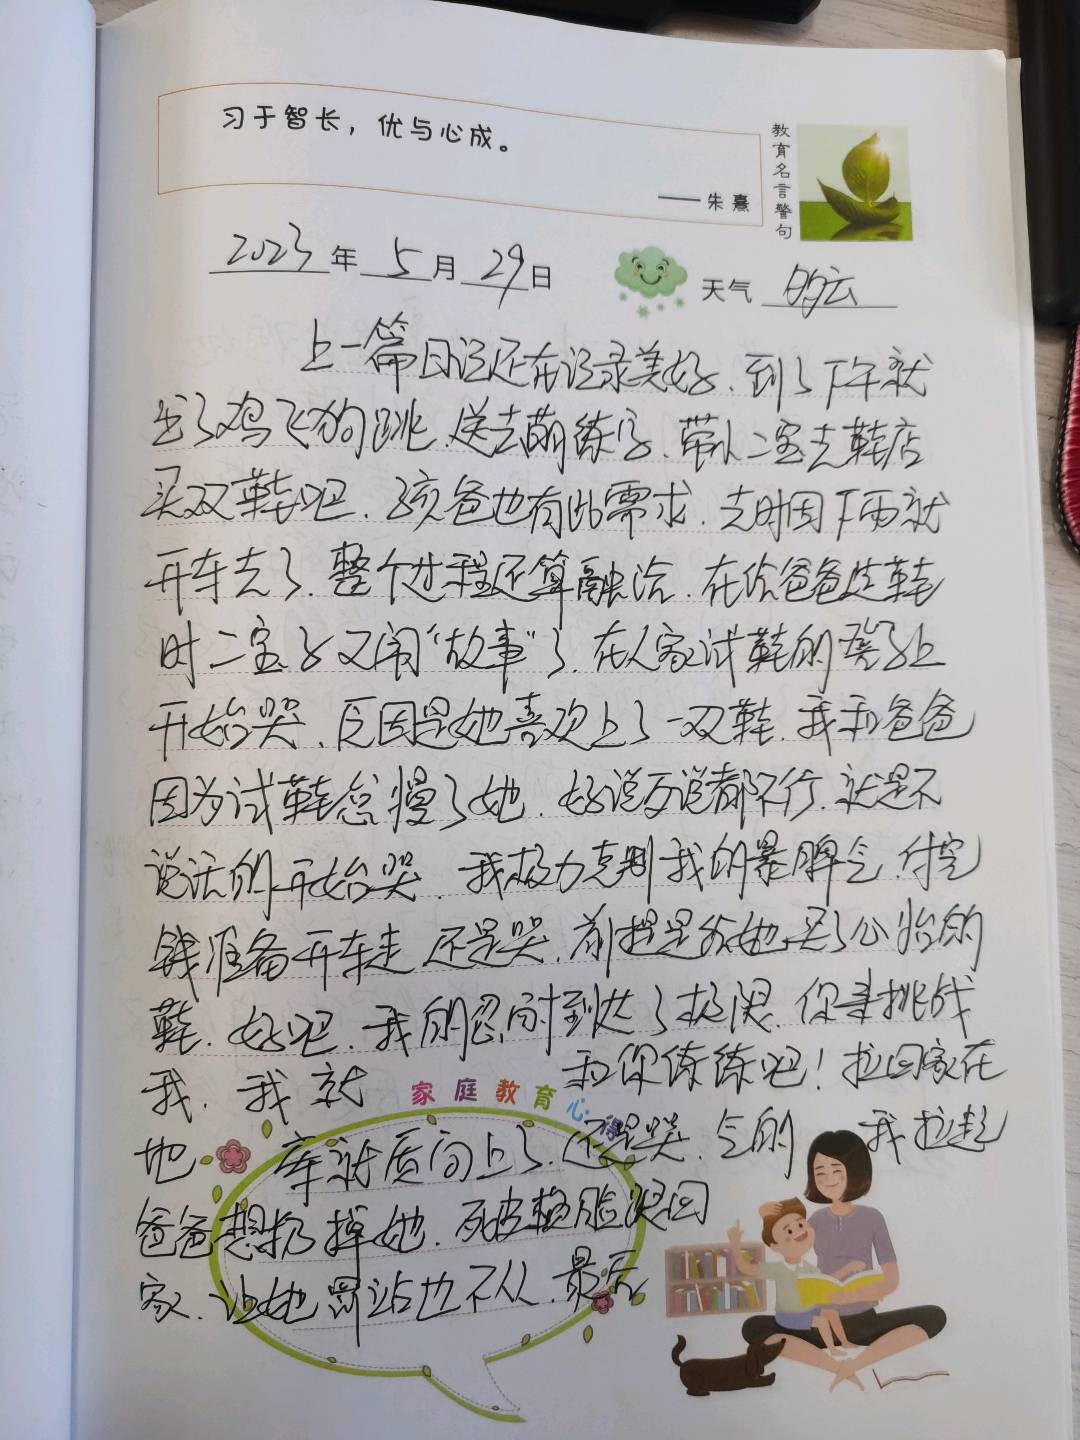 习于智长，优与心成。
——朱熹
教育名言警句
2023年5月29日
天气 多云
上一篇日记还在记录美好、到了下午就
出了鸡飞狗跳、送去萌练字、带小二宝去鞋店
买双鞋吧、孩爸也有此需求、去时因下雨就
开车去了、整个过程还算融洽、在给爸爸选鞋
时二宝又闹“故事”了、在人家试鞋的凳子上
开始哭、反因是她喜欢上了一双鞋、我和爸爸
因为试鞋怠慢了她、好说歹说都不行、就是不
说话的开始哭、我极力克制我的暴脾气、付完
钱准备开车走 还是哭、前提是给她买了心怡的
鞋、好吧、我的忍耐到达了极限、你来挑战
我、我就 和你练练吧！拉回家在
家庭教育心得
地 库就质问上了、还是哭、气的 我拉起
爸爸想扔掉她、死皮赖脸跟回
家、让她罚站也不从、最后